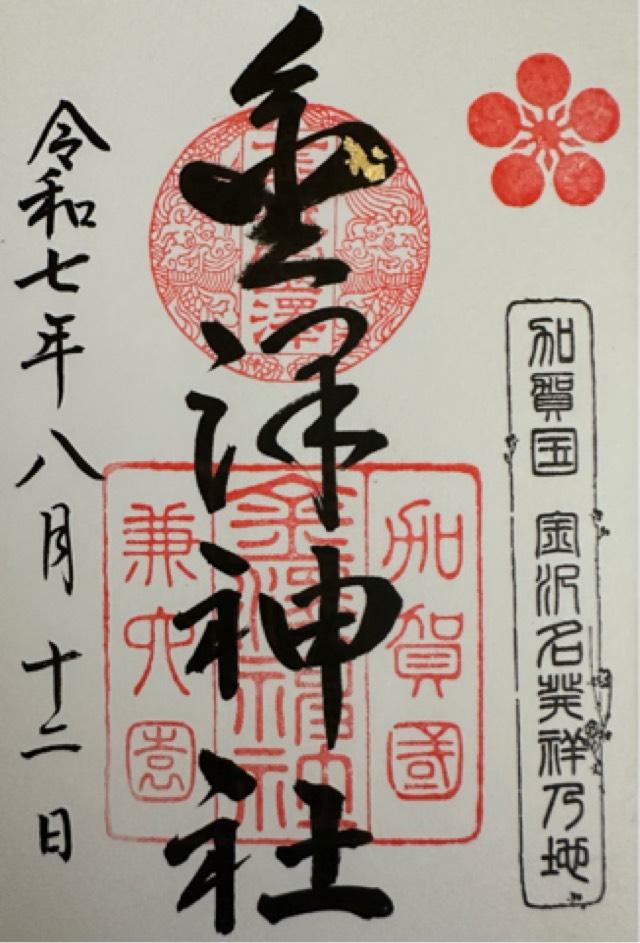 加賀国 金沢名発祥乃地
金澤神社
澤
加賀國
金澤神社
兼六園
令和七年八月十二日